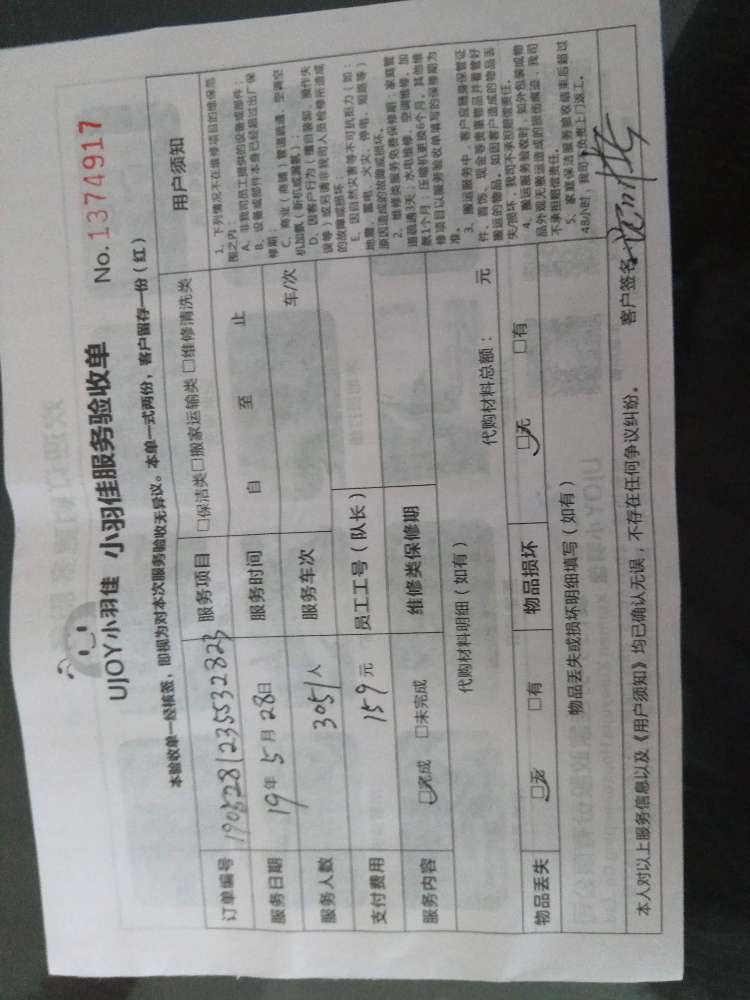 UJOY小羽佳 小羽佳服务验收单 No.1374917
本验收单一经核签，即视为对本次服务验收无异议。本单一式两份，客户留存一份（红）
订单编号 190528123553282 服务项目 □保洁类□搬家运输类 □维修清洗类 用户须知
服务日期 19年5月28日 服务时间 自 至 止
服务人数 3051人 服务车次 车/次
支付费用 159元 员工工号（队长）
服务内容 □完成 □未完成 维修类保修期
代购材料明细（如有） 代购材料总额： 元
物品丢失 □无 □有 物品损坏 □无 □有
物品丢失或损坏明细填写（如有）
1、下列情况不在维修项目的维保范
围之内：
A、非我司员工提供的设备或部件；
B、设备或部件本身已经超过出厂保
修期；
C、商业（商铺）管道疏通、空调空
机加氟（新机或漏氟）；
D、因客户行为（擅自装卸、操作失
误等）或另请非我司人员检修所造成
的故障或损坏。
E、因自然灾害等不可抗拒力（如：
地震、蓄电、火灾、停电、短路等）
原因造成的故障或损坏。
2、维修类服务免费保修期：家庭管
道疏通3天；水电维修、空调维修、加
氟1个月；压缩机更换6个月，其他维
修项目以服务验收单填写的保修期为
准。
3、搬运服务中，客户应随身保管证
件、首饰、现金等贵重物品并看管好
搬运的物品。如因客户造成的物品丢
失/损坏，我司不承担赔偿责任。
4、搬运服务验收时，如外包装或物
品外观无搬运造成的损伤痕迹，我司
不承担赔偿责任。
5、家庭保洁服务验收结束后超过
48小时，我司不负责上门返工。
本人对以上服务信息以及《用户须知》均已确认无误，不存在任何争议纠纷。 客户签名